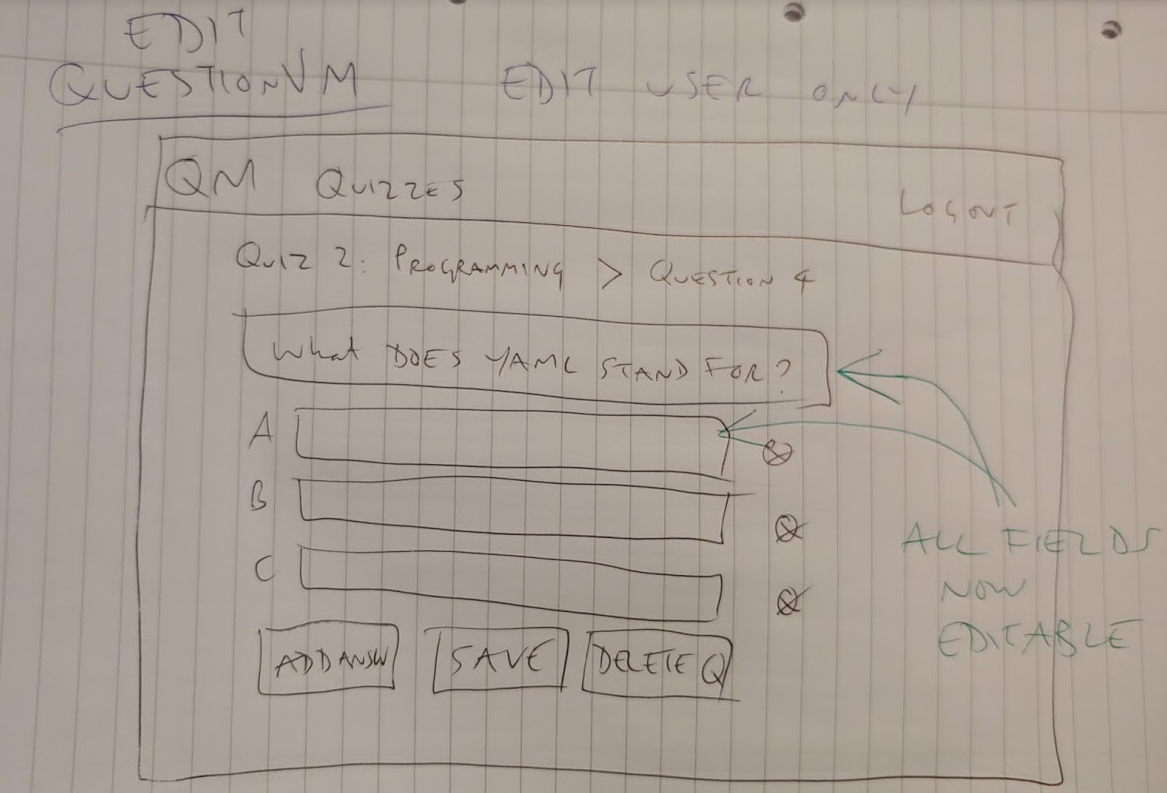 EDIT
QUESTIONVM
EDIT USER ONLY
QM QUIZZES LOGOUT
QUIZ 2: PROGRAMMING > QUESTION 4
What DOES YAML STAND FOR?
A
B
C
ADD ANSW SAVE DELETE Q
ALL FIELDS
NOW
EDITABLE